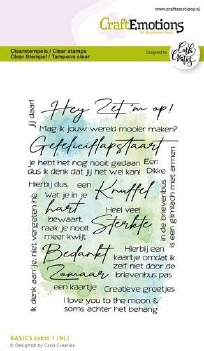 www.craftemotions.nl
CraftEmotions
Clearstempels / Clear stamps
Clear Stempel / Tampons clear
Designed by
Carla Creaties
Jij daar!
Hey Zet 'm op!
Mag ik jouw wereld mooier maken?
Gefeliciflapstaart
Je hebt het nog nooit gedaan
dus ik denk dat jij het wel kan!
Een
Dikke
Hierbij dus een
Knuffel
Wat je in je
hart
bewaart,
raak je nooit
meer kwijt
Heel veel
Sterkte
in de brievenbus
is een glimlach met armen
Ik denk aan je, niet vergeten hè
Bedankt
Zomaar
een kaartje
Hierbij een
kaartje omdat ik
zelf niet door de
brievenbus pas
Creatieve groetjes
I love you to the moon &
soms achter het behang
BASICS-tekst 1 (NL)
© Designed by Carla Creaties